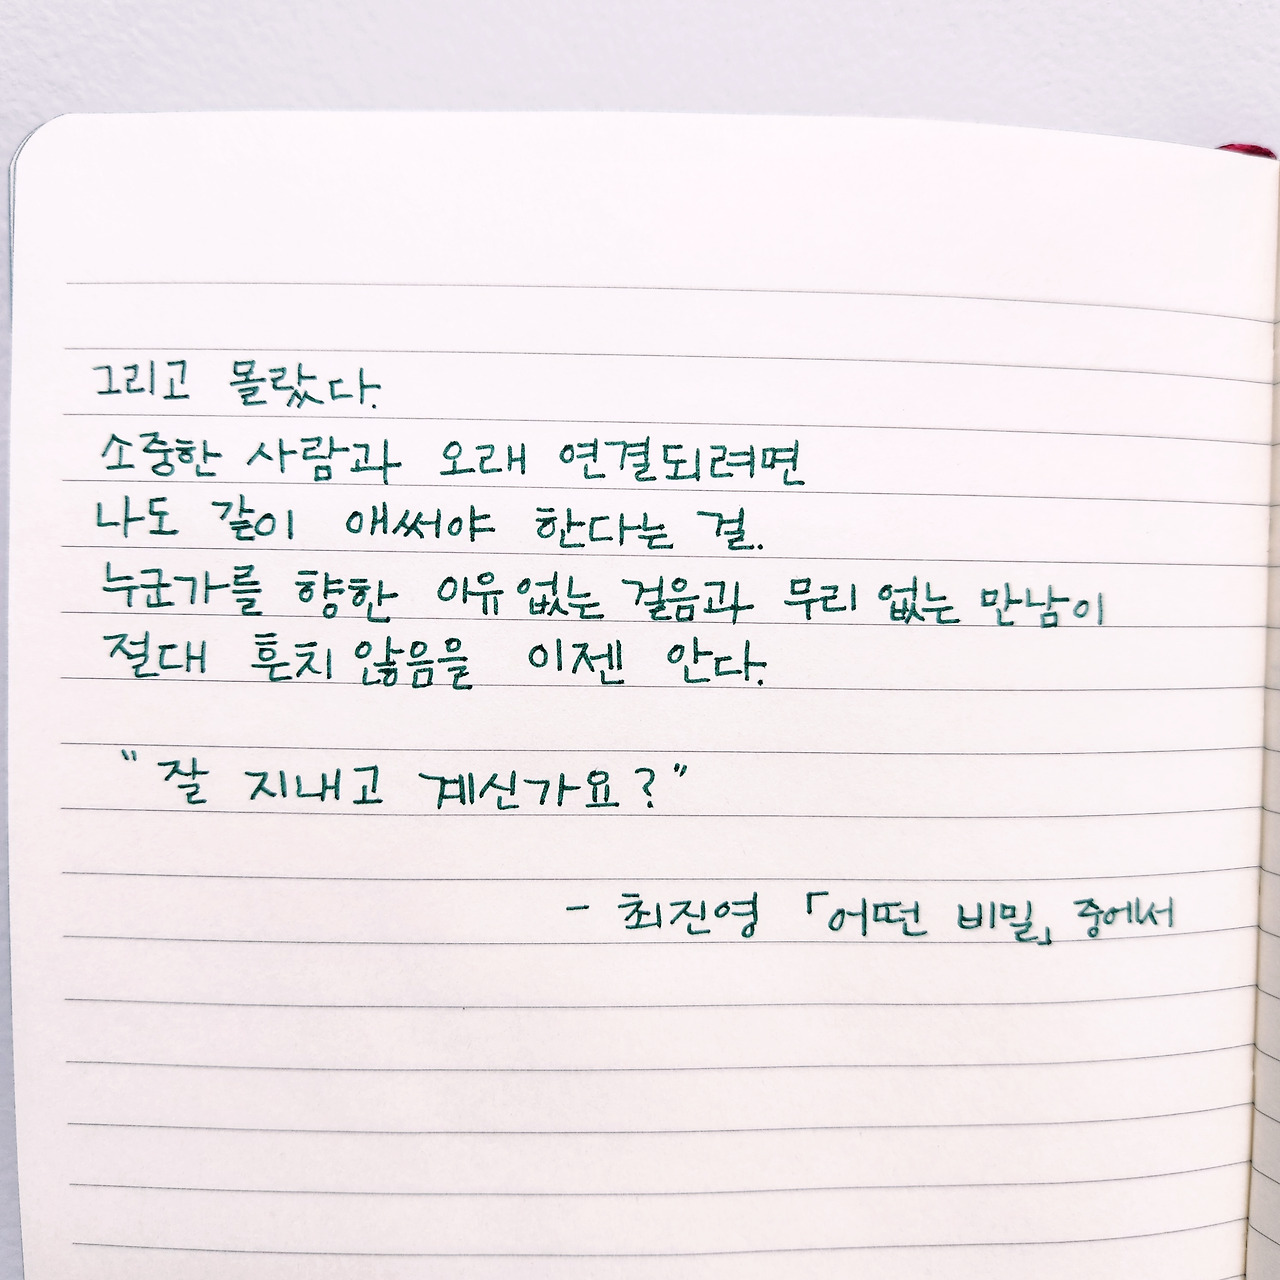 그리고 몰랐다.
소중한 사람과 오래 연결되려면
나도 같이 애써야 한다는 걸.
누군가를 향한 이유 없는 걸음과 무리 없는 만남이
절대 흔치 않음을 이젠 안다.
"잘 지내고 계신가요?"
- 최진영 「어떤 비밀」 중에서